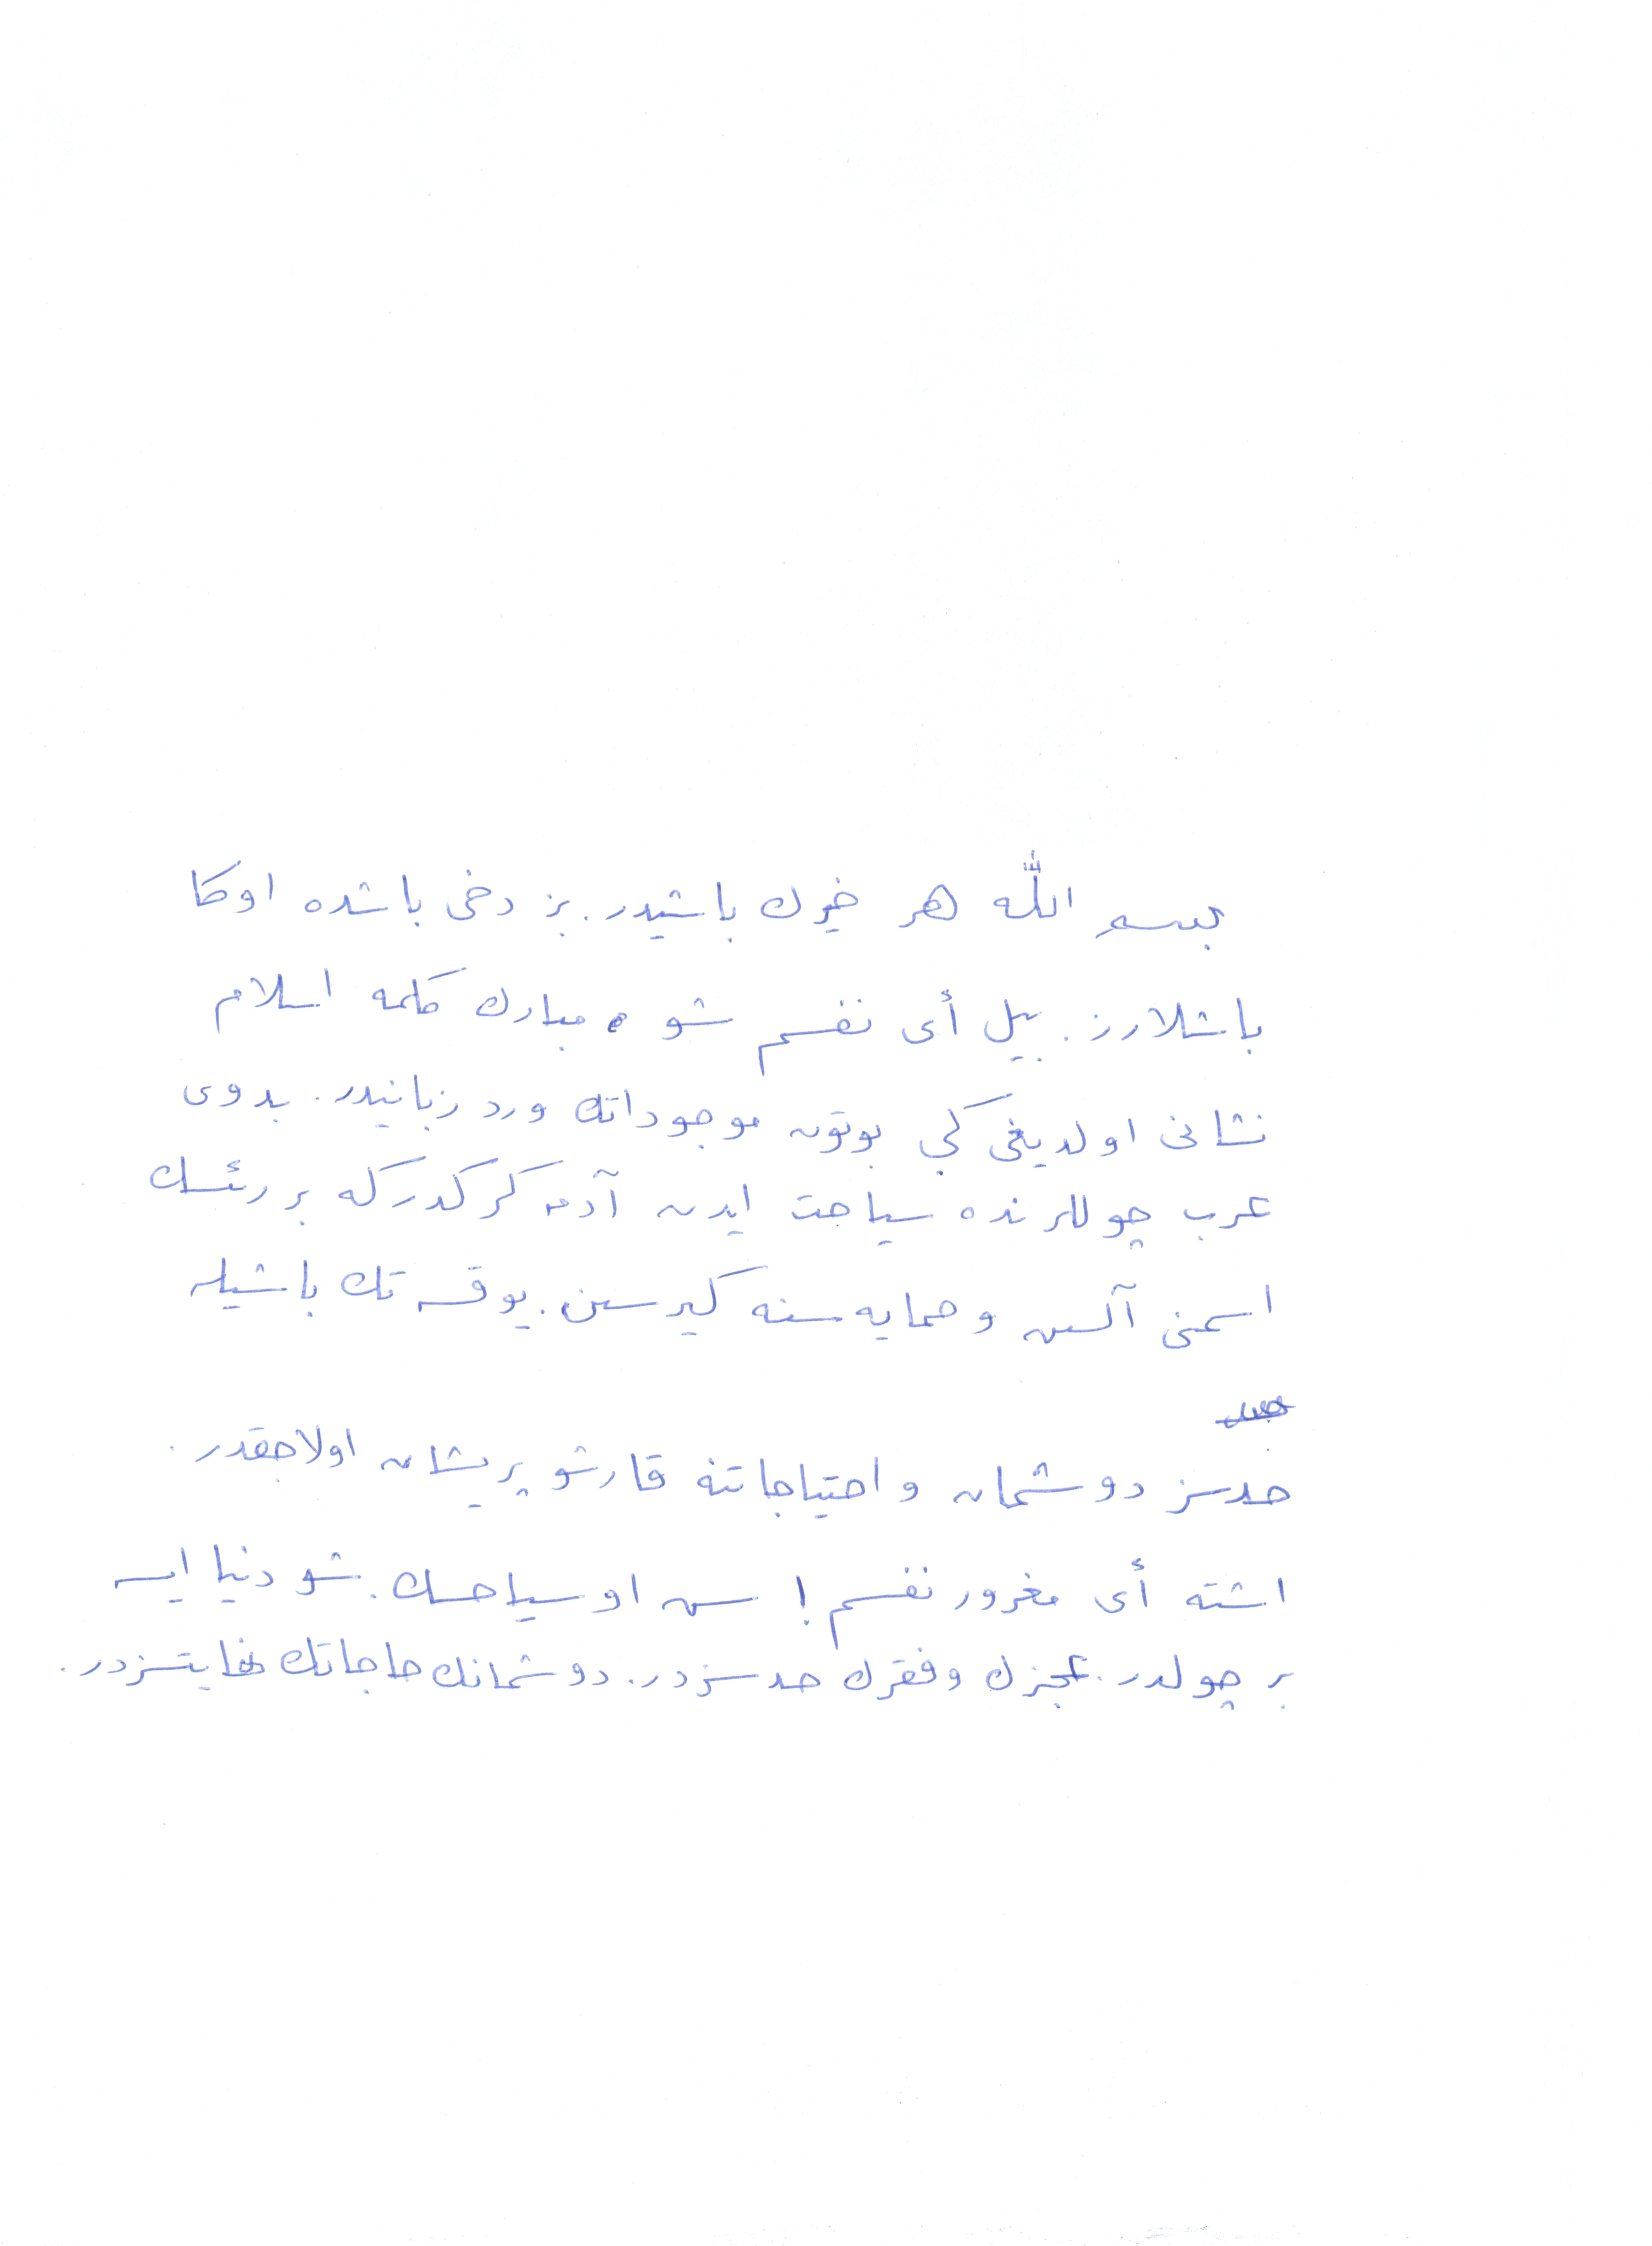 بسم الله هر خيرك باشيدر. بز دخى باشده اوكا
باشلارز. بيل أى نفسم شو مبارك كلمه اسلام
نشانى اولديغى كبي بوتون موجوداتك ورد زبانيدر. بدوى
عرب چوللرنده سياحت ايدن آدم كركدركه بر رئسك
اسمنى آلسن و حمايه سنه كيرسين. يوقسه تك باشيله
حدسز دوشمان و احتياجاتنه قارشو پريشان اولاجقدر.
اشته أى مغرور نفسم! سن او سياحسك. شو دنيا ايسه
بر چولدر. عجزك و فقرك حدسزدر. دوشمانك حاجاتك غايتسزدر.